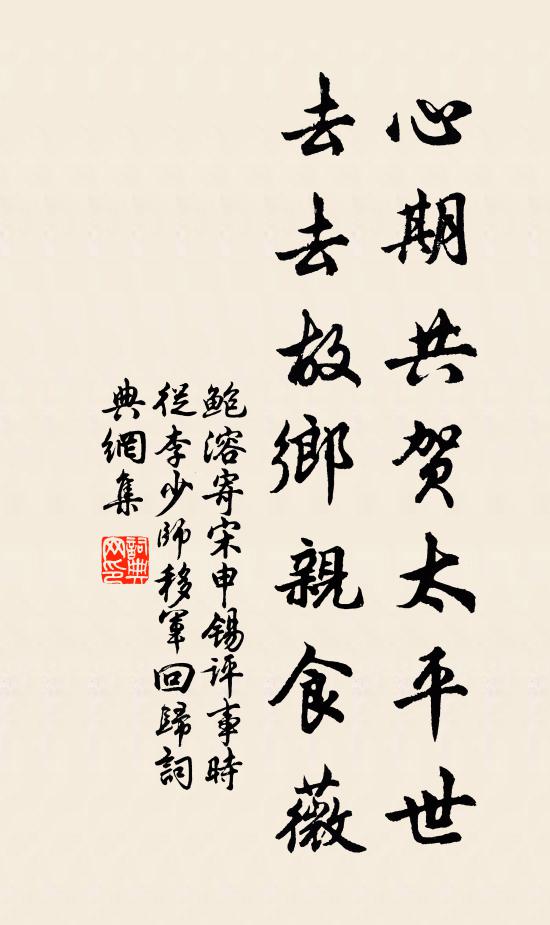 心期共贺太平世
去去故鄉親食薇
鲍溶寄宋申錫评事時
從李少師移军回歸詞
典網集
詞典网印